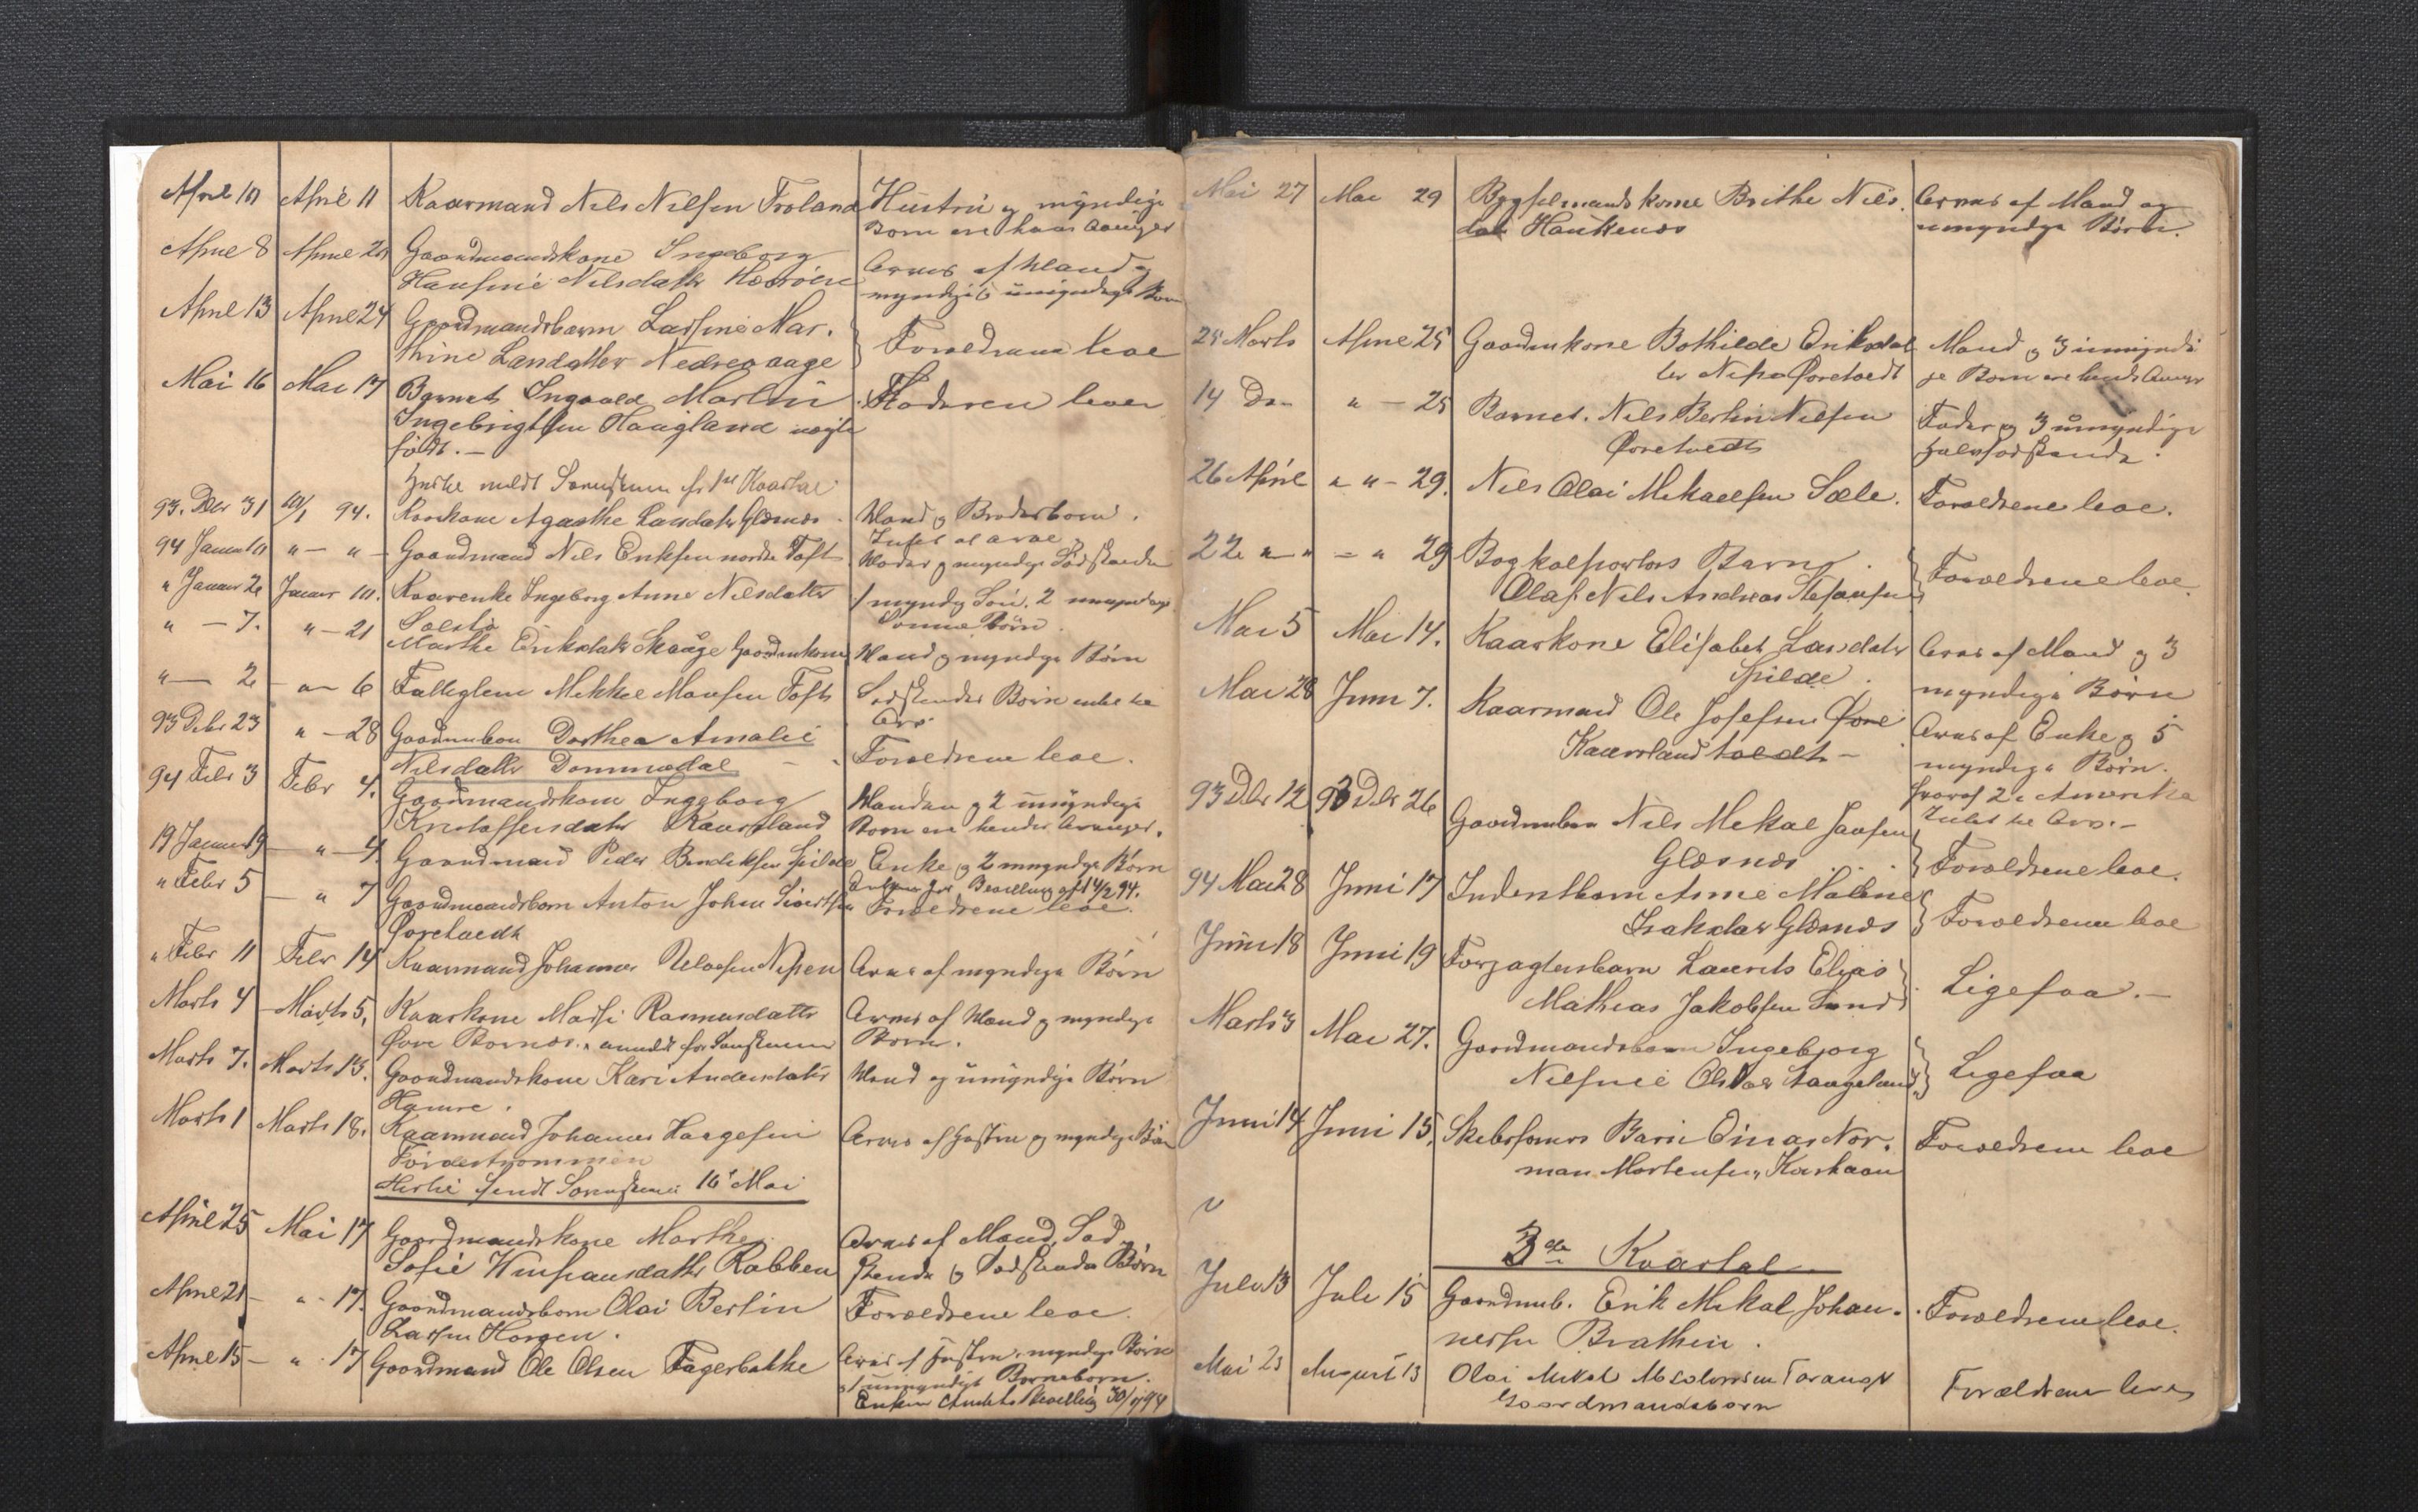 April 10 April 11 Kaarmand Nils Nilsen Troland Hustru og myndige
Børn ere hans Arvinger
April 8 April 20 Gaardmandskone Ingeborg Arves af Mand og
Hansine Nilsdatter myndige & umyndige Børn
April 13 April 24 Gaardmandsbarn Larsine Mar-
thine Larsdatter Nedreaage Forældrene leve
Mai 16 Mai 17 Barnet Ingvald Martin Faderen lever
Ingebrigtsen Haugland uægte
født. -
Hertil meldt Sorenskriveren for 1ste Kvartal
93. Dbr 31 10/1 94. Kaarkone Agasthe Larsdatter Glæsnæs. Mand og Broderbørn.
Intet at arve
94 Januar 10 " — " — Gaardmand Nils Eriksen nordre Toft Moder og myndige Sødskende
" Januar 2 Januar 10. Kaarenke Ingeborg Anne Nilsdatter 1 myndig Søn, 2 umyndige
Solsti Sønnebørn.
" — 7. " — 21 Marthe Eriksdatter Skaage Gaardmkone Mand og myndige Børn
" — 2 " — 6 Fattiglem Mikkel Monsen Toft Sødskendes Børn intet til
Arv.
93 Debr 23 " — 28 Gaardmbarn Dorthea Amalie
Nilsdatter Dommedal — Forældrene leve.
94 Febr 3 Febr 4. Gaardmandskone Ingeborg Manden og 2 umyndige
Kristoffersdatter Kaursland Børn ere hendes Arvinger.
19 Januar 19 — " — 4 Gaardmand Peder Bendiksen Spilde Enke og 2 umyndige Børn
Enken har Bevilling af 14/2 94.
" Febr 5 — " 7 Gaardmandsbarn Anton Johan Sivertsen Forældrene leve.
Øvretvedt
" Febr 11 Febr 14 Kaarmand Johannes Nilsen Nipen Arves af myndige Børn
Marts 4 Marts 5. Kaarkone Marsi Rasmusdatter Arves af Mand og myndige
Øvre Bornæs. anmeldt for Sorenskriveren Børn.
Marts 7. Marts 13. Gaardmandskone Kari Andersdatter Mand og umyndige Børn
Hamre.
Marts 1 Marts 18. Kaarmand Johannes Haagesen Arves af Hustru og myndige Børn
Førdestrømmen
Hertil sendt Sorenskriveren 16 Mai
April 25 Mai 17 Gaardmandskone Marthe Arves af Mand, Sød-
Sofie Winfransdatter Rabben skende og Sødskendes Børn
April 21 — " - 17. Gaardmandsbarn Olai Bertin Forældrene leve.
Larsen Horgen.
April 15 — " . 17 Gaardmand Ole Olsen Fagerbakke Arves af Hustru, myndige Børn
og 1 umyndigt Barnebarn.
Enken Bevilling 30/
Mai 27 Mai 29 Bygselmands kone Brithe Nils- Arves af Mand og
dat Haukenæs umyndige Børn.
25 Marts April 25 Gaardmkone Bothilde Eriksdat- Mand og 3 umyndi-
ter Nipa Øvretvedt ge Børn ere hendes Arvinger
14 Do — " — 25 Barnet. Nils Bertin Nilsen Fader og 3 umyndige
Øvretvedt halvsødskende.
26 April " " — 29. Nils Olai Mikaelsen Sæle. Forældrene leve.
22 " — " — " 29 Bogkolportørs Barn
Olaf Nils Andreas Stefansen Forældrene leve.
Mai 5 Mai 14. Kaarkone Elisabet Larsdatter Arves af Mand og 3
Spilde. myndige Børn
Mai 28 Juni 7. Kaarmand Ole Josefsen Øvre Arves af Enke og 5
Kaursland tvedt — myndige Børn.
hvoraf 2 i Amerika
Intet til Arv. —
93 Dbr 12 93 Dbr 26 Gaardmbarn Nils Mikal Jansen
Glæsnæs Forældrene leve.
94 Mai 28 Juni 17 Inderstbarn Anne Malene
Isaksdatter Glæsnæs Forældrene leve
Juni 18 Juni 19 Forpagtersbarn Laurits Elias
Mathias Jakobsen Sund Ligesaa. —
Marts 3 Mai 27. Gaardmandsbarn Ingeborg
Nilsine Olsdatter Aageland Ligesaa
Juni 14 Juni 15. Skibsførers Barn Einar Nor- Forældrene leve
man Mortensen,
3die Kvartal
Juli 13 Juli 15 Gaardmb. Erik Mikal Johan- Forældrene leve.
nessen Brathein.
Mai 23 August 13 Olai Mikal Absalonsen Forældrene leve
Gaardmandsbarn